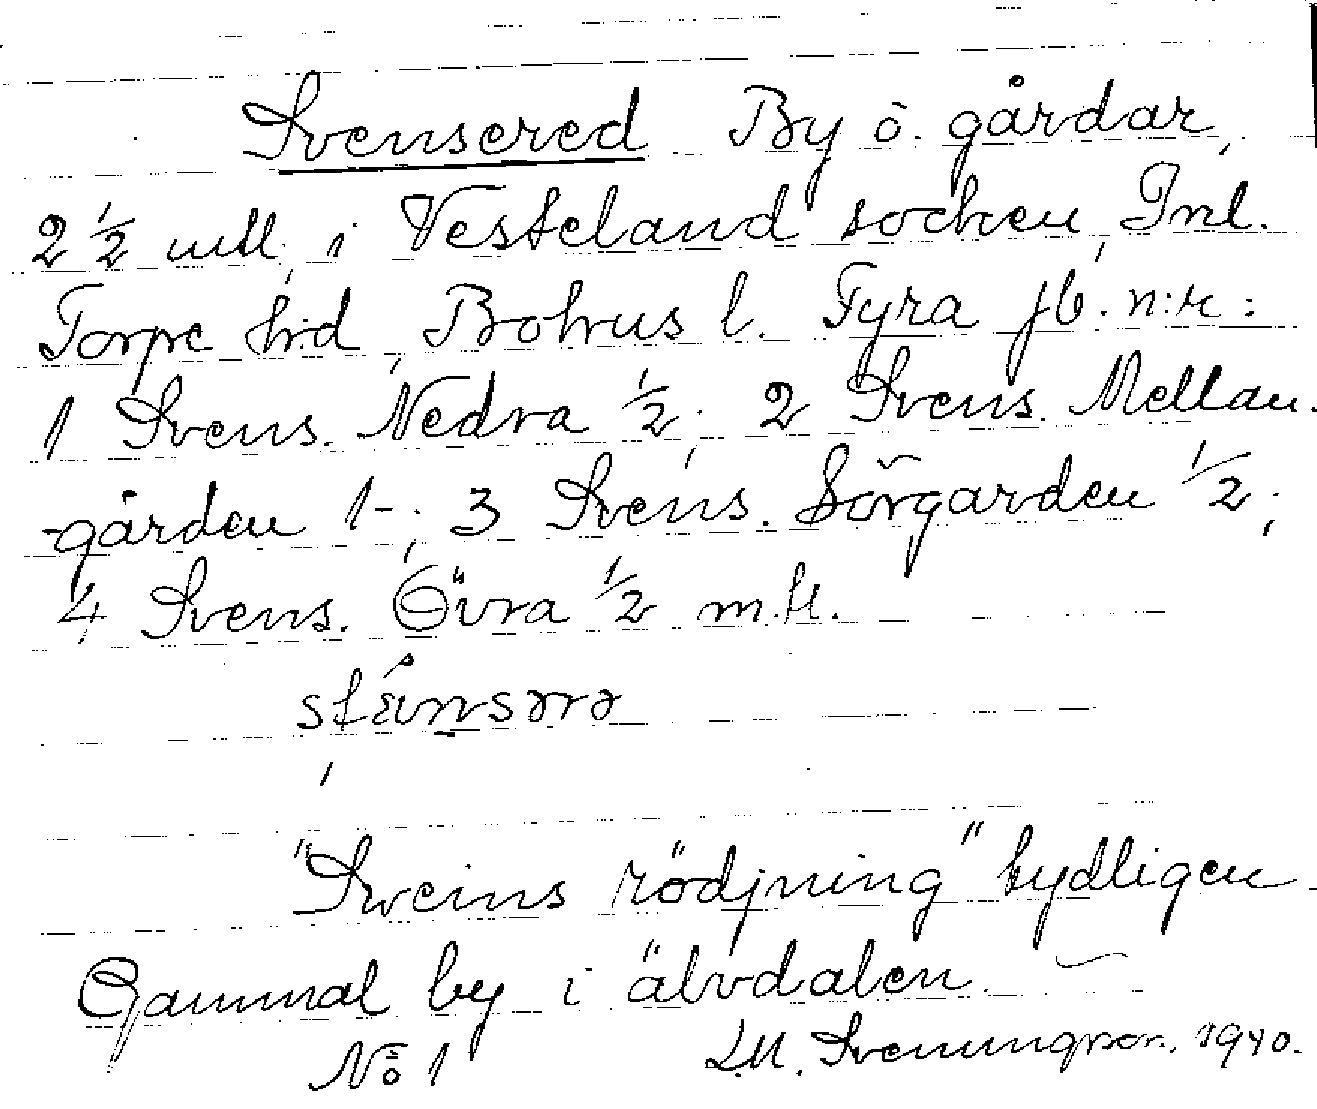 Svensered By o. gårdar,
2 1/2 mtl, i Vesteland socken, Inl.
Torpe h:d, Bohus l. Fyra jb. n:r:
1 Svens. Nedra 1/2; 2 Svens. Mellan-
gården 1-; 3 Svens. Sörgården 1/2;
4 Svens. Övra 1/2 m.fl.
"Sveins rödjning" tydligen
Gammal by i älvdalen.
No 1 1940.